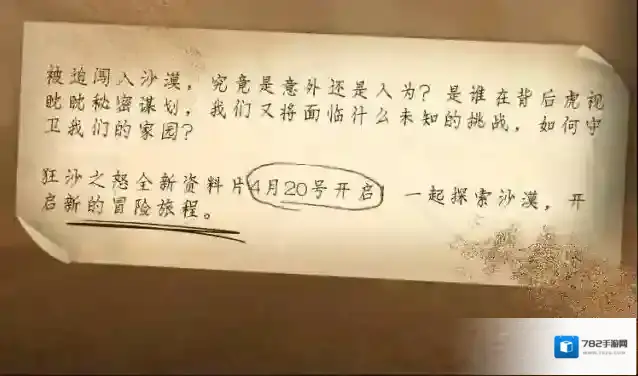 被迫闯入沙漠，究竟是意外还是人为？是谁在背后虎视
眈眈秘密谋划，我们又将面临什么未知的挑战，如何守
卫我们的家园？
狂沙之怒全新资料片4月20号开启！一起探索沙漠，开
启新的冒险旅程。
782手游网